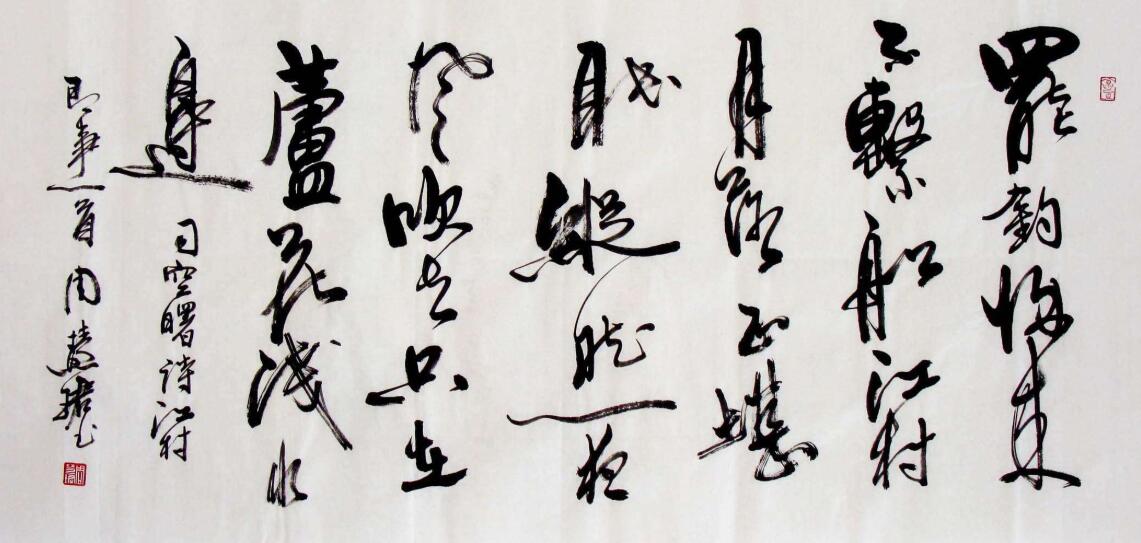 罷釣歸來
不繫船江村
月落正堪
眠縱然一夜
風吹去只在
蘆花淺水
邊
司空曙詩江村
即事一首 周慧珺書